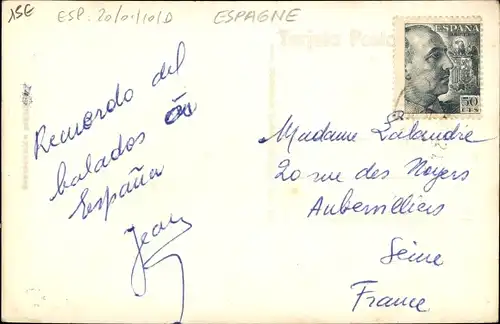 15E ESP: 20/01/10/D ESPAGNE
Tarjeta Postal
ESPAÑA
50
CTS
Recuerdo del
balados en
España
Jean
Madame Lalandre
20 rue des Noyers
Aubervilliers
Seine
France